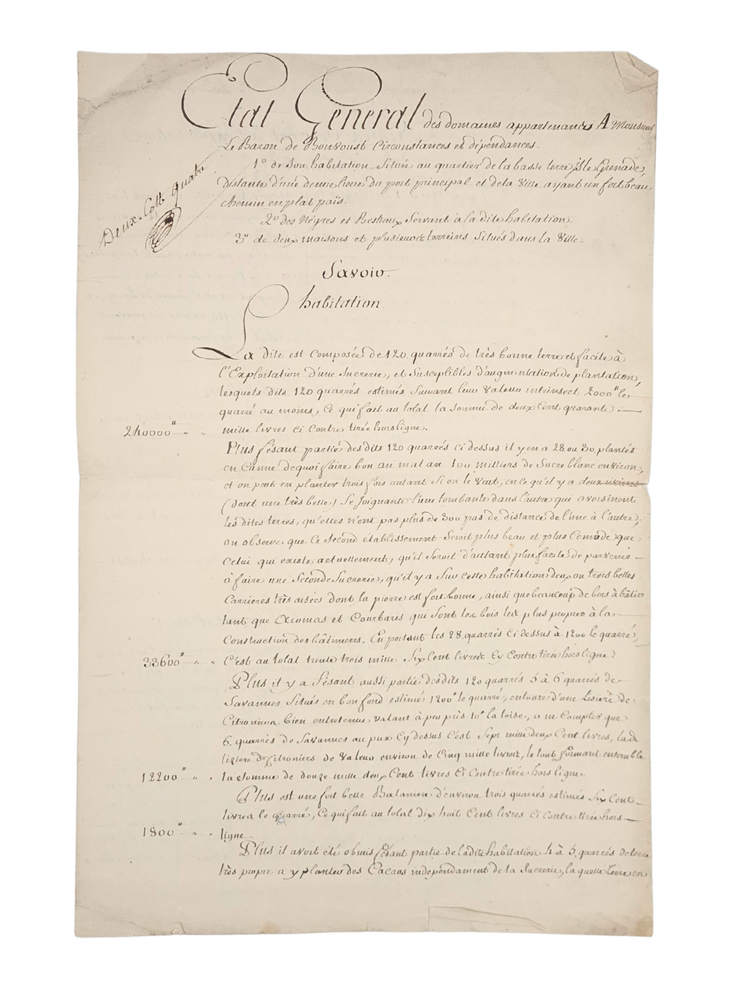 Etat General des domaines appartenances A Monsieur
Le Baron de Bonvoust Circonstances et dépendances.
1° de Son habitation Située au quartier de la basse terre Isle Grenade,
Distante d'une demie lieue du port principal et de la Ville ayant un fort beau
chemin en plat païs.
2° des Négres et Bestiaux Servant à la dite habitation.
3° de deux maisons et plusieurs terreins Situés dans la Ville.
Deux. Cott. quatre
Savoir.
habitation
La dite est composée de 120 quarrés de très bonne terre et facile à
l'Exploitation d'une Sucrerie, et Susceptibles d'augmentation de plantation,
lesquels dits 120 quarrés estimés Suivant leur Valeur intrinsect 2000# le
quarré au moins, Ce qui fait au total la Somme de deux Cent quarante
240000# mille livres Ci Contre tirée hors ligne.
Plus fesant partie des dits 120 quarrés Ci dessus il y en a 28 ou 30 plantés
en Canne de quoi faire bon an mal an 100 milliers de Sucre blanc environ,
et on peut en planter trois fois autant Si on le Veut, en ce qu'il y a deux rivières
(dont une très belle) Se Joignantes l'une tombante dans l'autre qui avoisinent
les dites terres, qu'elles n'ont pas plus de 300 pas de distance de l'une à l'autre;
on observe que Ce Second établissement Seroit plus beau et plus Comode que
Celui qui existe actuellement, qu'il Seroit d'autant plus facile de parvenir
à faire une Seconde Sucrerie, qu'il y a Sur cette habitation deux ou trois belles
Carrieres très aisées dont la pierre est fort bonne, ainsi que beaucoup de bois à bâtir
tant que Acomas et Courbaris qui Sont les bois les plus propres à la
Construction des bâtimens. En portant les 28 quarrés Ci dessus à 1200 le quarré,
33600# C'est au total trente trois mille Six Cent livres Cy Contre tirée hors ligne.
Plus il y a fesant aussi partie desdits 120 quarrés 5 à 6 quarrés de
Savannes Situés en bon fond estimé 1200# le quarré, entouré d'une Lisiere de
Citroniers bien entretenue valant à peu près 10# la toise, a ne Compter que
6 quarrés de Savannes au prix Cy dessus C'est Sept mille deux Cent livres, la d.
liziere de Citroniers de Valeur environ de Cinq mille livres, le tout formant ensemble
12200# la Somme de douze mille deux Cents livres Ci Contre tirée hors ligne.
Plus est une fort belle Bataniere d'environ trois quarrés estimés Six Cent
livres le quarré, Ce qui fait au total dix huit Cent livres Ci Contre tirée hors
1800# ligne
Plus il avoit été obmis fesant partie de ladite habitation 4 à 5 quarrés de terre
très propre a y planter des Cacaos indépendament de la Sucrerie, la quelle terre en